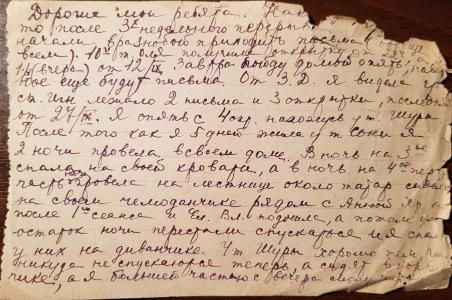 Дорогие мои ребята. Нак
то после 3х недельного перерыва
начали вразнобой приходить письма (
всем). 10го я получила открытку от
14 (вчера) от 12/IX. Завтра пойду домой опять,
ное еще будут письма. От З.Д. я видела у
лежало 2 письма и 3 открытки, послед
от 24/IX. Я опять с 4 нахожусь у т. Шуры
После того как я 5 дней жила у т. Сони я
2 ночи провела в своем доме. В ночь на 3ье
спала на своей кровати, а в ночь на 4ое пер
часть ночи провела на лестнице около татар
на своем чемоданчике рядом с Анной Яр
после 1го сеанса и Ел. Вл. подошла, а потом
остаток ночи перестали спускаться и я спа
у них на диванчике. У т Шуры хорошо тем,
никуда не спускаются теперь, а сидят в
чике, а я большей частью с вечера